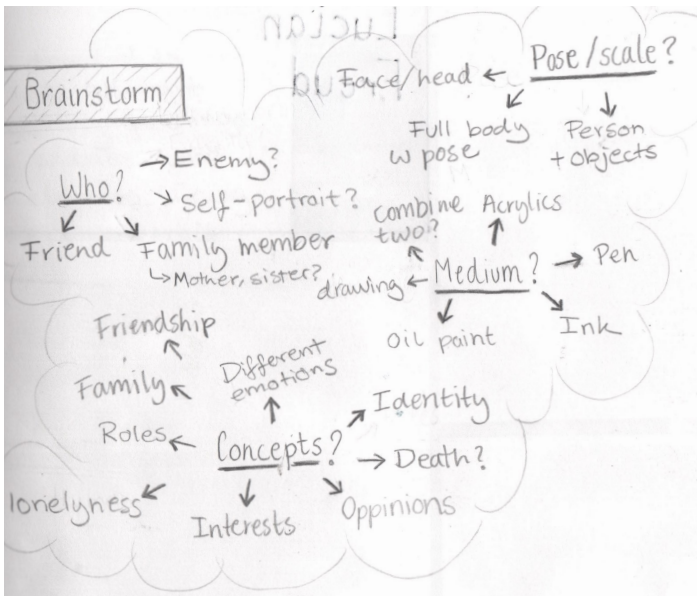 Lucian
Freud
Brainstorm
Pose/scale?
Face/head
Full body
w pose
Person
+ objects
Who?
Enemy?
Self-portrait?
Friend
Family member
Mother, sister?
Medium?
combine
two?
Acrylics
Pen
Ink
Oil paint
drawing
Concepts?
Friendship
Family
Roles
lonelyness
Different
emotions
Identity
Death?
Oppinions
Interests